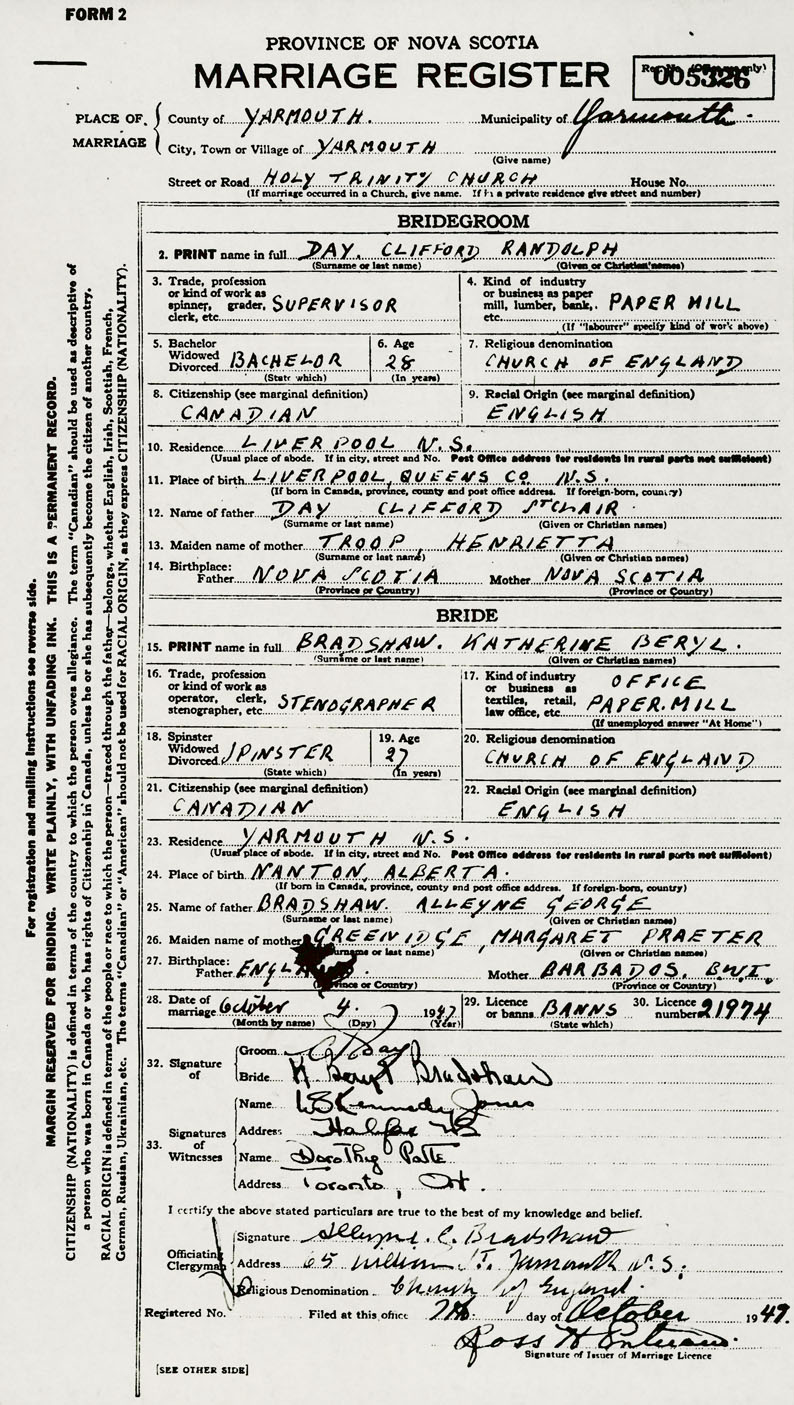 FORM 2
PROVINCE OF NOVA SCOTIA
MARRIAGE REGISTER
005326
PLACE OF MARRIAGE
County of YARMOUTH. Municipality of Yarmouth.
City, Town or Village of YARMOUTH
(Give name)
Street or Road HOLY TRINITY CHURCH House No.
(If marriage occurred in a Church, give name. If in a private residence give street and number)
BRIDEGROOM
2. PRINT name in full DAY. CLIFFORD RANDOLPH
(Surname or last name) (Given or Christian names)
3. Trade, profession or kind of work as spinner, grader, clerk, etc. SUPERVISOR
4. Kind of industry or business as paper mill, lumber, bank, etc. PAPER MILL
(If "labourer" specify kind of work above)
5. Bachelor Widowed Divorced BACHELOR
(State which)
6. Age 28
(In years)
7. Religious denomination
CHURCH OF ENGLAND
8. Citizenship (see marginal definition)
CANADIAN
9. Racial Origin (see marginal definition)
ENGLISH
10. Residence LIVERPOOL N.S.
(Usual place of abode. If in city, street and No. Post Office address for residents in rural parts not sufficient)
11. Place of birth LIVERPOOL, QUEENS CO N.S.
(If born in Canada, province, county and post office address. If foreign-born, country)
12. Name of father DAY CLIFFORD ST CLAIR
(Surname or last name) (Given or Christian names)
13. Maiden name of mother TROOP HENRIETTA
(Surname or last name) (Given or Christian names)
14. Birthplace: Father NOVA SCOTIA Mother NOVA SCOTIA
(Province or Country) (Province or Country)
BRIDE
15. PRINT name in full BRADSHAW. KATHERINE BERYL.
(Surname or last name) (Given or Christian names)
16. Trade, profession or kind of work as operator, clerk, stenographer, etc. STENOGRAPHER
17. Kind of industry or business as textiles, retail, law office, etc. OFFICE PAPER.MILL
(If unemployed answer "At Home")
18. Spinster Widowed Divorced SPINSTER
(State which)
19. Age 27
(In years)
20. Religious denomination
CHURCH OF ENGLAND
21. Citizenship (see marginal definition)
CANADIAN
22. Racial Origin (see marginal definition)
ENGLISH
23. Residence YARMOUTH N.S.
(Usual place of abode. If in city, street and No. Post Office address for residents in rural parts not sufficient)
24. Place of birth NANTON, ALBERTA.
(If born in Canada, province, county and post office address. If foreign-born, country)
25. Name of father BRADSHAW. ALLEYNE GEORGE
(Surname or last name) (Given or Christian names)
26. Maiden name of mother GREENIDGE, MARGARET PRAETER
(Surname or last name) (Given or Christian names)
27. Birthplace: Father ENGLAND. Mother BARBADOS. B.W.I.
(Province or Country) (Province or Country)
28. Date of marriage October 4. 1947
(Month by name) (Day) (Year)
29. Licence or banns BANNS
(State which)
30. Licence number 21974
32. Signature of
Groom Day
Bride K Beryl Bradshaw
33. Signatures of Witnesses
Name Kennedy Jones
Address Halifax NS
Name Dorothy
Address Toronto, Ont.
I certify the above stated particulars are true to the best of my knowledge and belief.
Officiating Clergyman
Signature Alleyne G. Bradshaw
Address 65 William St. Yarmouth N.S.
Religious Denomination Church of England.
Registered No. Filed at this office 7th day of October 1947.
Ross H
Signature of Issuer of Marriage Licence
[SEE OTHER SIDE]
For registration and mailing instructions see reverse side.
MARGIN RESERVED FOR BINDING. WRITE PLAINLY, WITH UNFADING INK. THIS IS A PERMANENT RECORD.
CITIZENSHIP (NATIONALITY) is defined in terms of the country to which the person owes allegiance. The term "Canadian" should be used as descriptive of
a person who was born in Canada or who has rights of Citizenship in Canada, unless he or she has subsequently become the citizen of another country.
RACIAL ORIGIN is defined in terms of the people or race to which the person—traced through the father—belongs, whether English, Irish, Scottish, French,
German, Russian, Ukrainian, etc. The terms "Canadian" or "American" should not be used for RACIAL ORIGIN, as they express CITIZENSHIP (NATIONALITY).